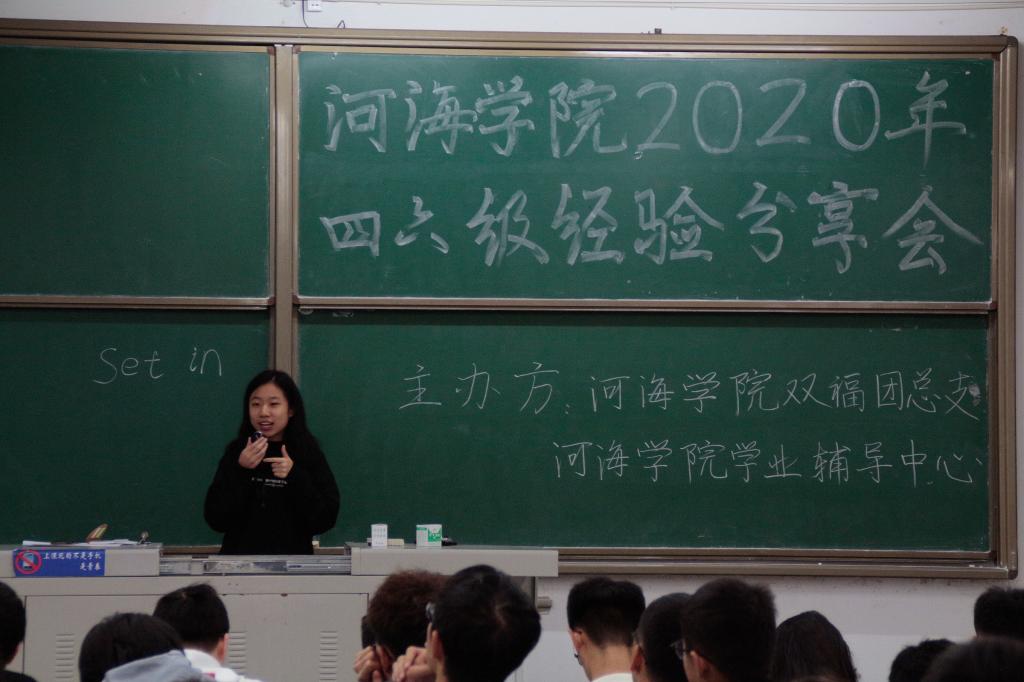 河海学院2020年
四六级经验分享会
set in
主办方:河海学院双福团总支
河海学院学业辅导中心
上课玩的不是手机
是青春